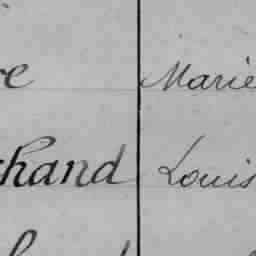 re Marie
chand Louis